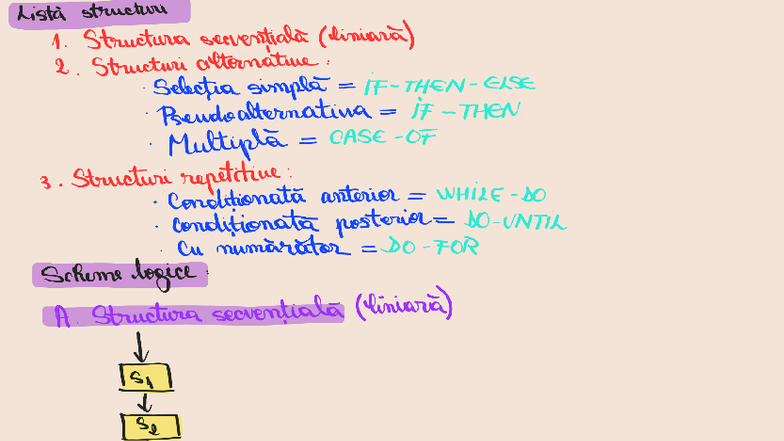 Listă structuri
1. Structura secvențială (liniară)
2. Structuri alternative:
· Selecția simplă = IF-THEN-ELSE
· Pseudoalternativa = IF-THEN
· Multiplă = CASE-OF
3. Structuri repetitive:
· Condiționată anterior = WHILE-DO
· Condiționată posterior = DO-UNTIL
· Cu numărător = DO-FOR
Scheme logice:
A. Structura secvențială (liniară)
S1
S2